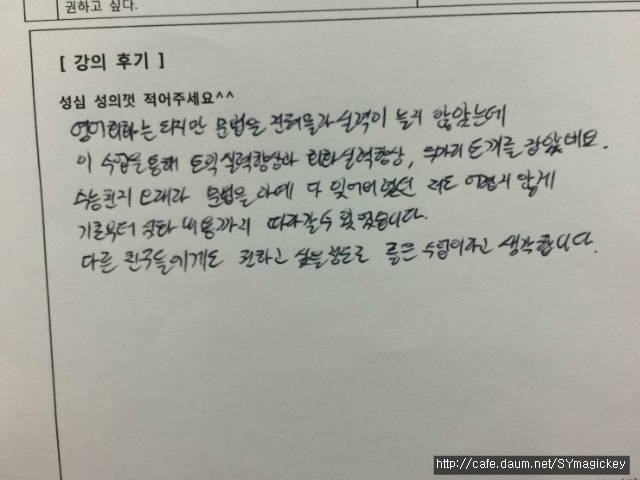 권하고 싶다.
[ 강의 후기 ]
성심 성의껏 적어주세요^^
영어회화는 되지만 문법을 전혀몰라 실력이 늘지 않았는데
이 수업을 통해 토익실력향상과 회화실력향상, 두마리 토끼를 잡았네요.
수능친지 오래라 문법을 아예 다 잊어버렸던 저도 어렵지 않게
기초부터 심화 내용까지 따라갈수 있었습니다.
다른 친구들에게도 권하고 싶을정도로 좋은 수업이라고 생각합니다.
http://cafe.daum.net/SYmagickey